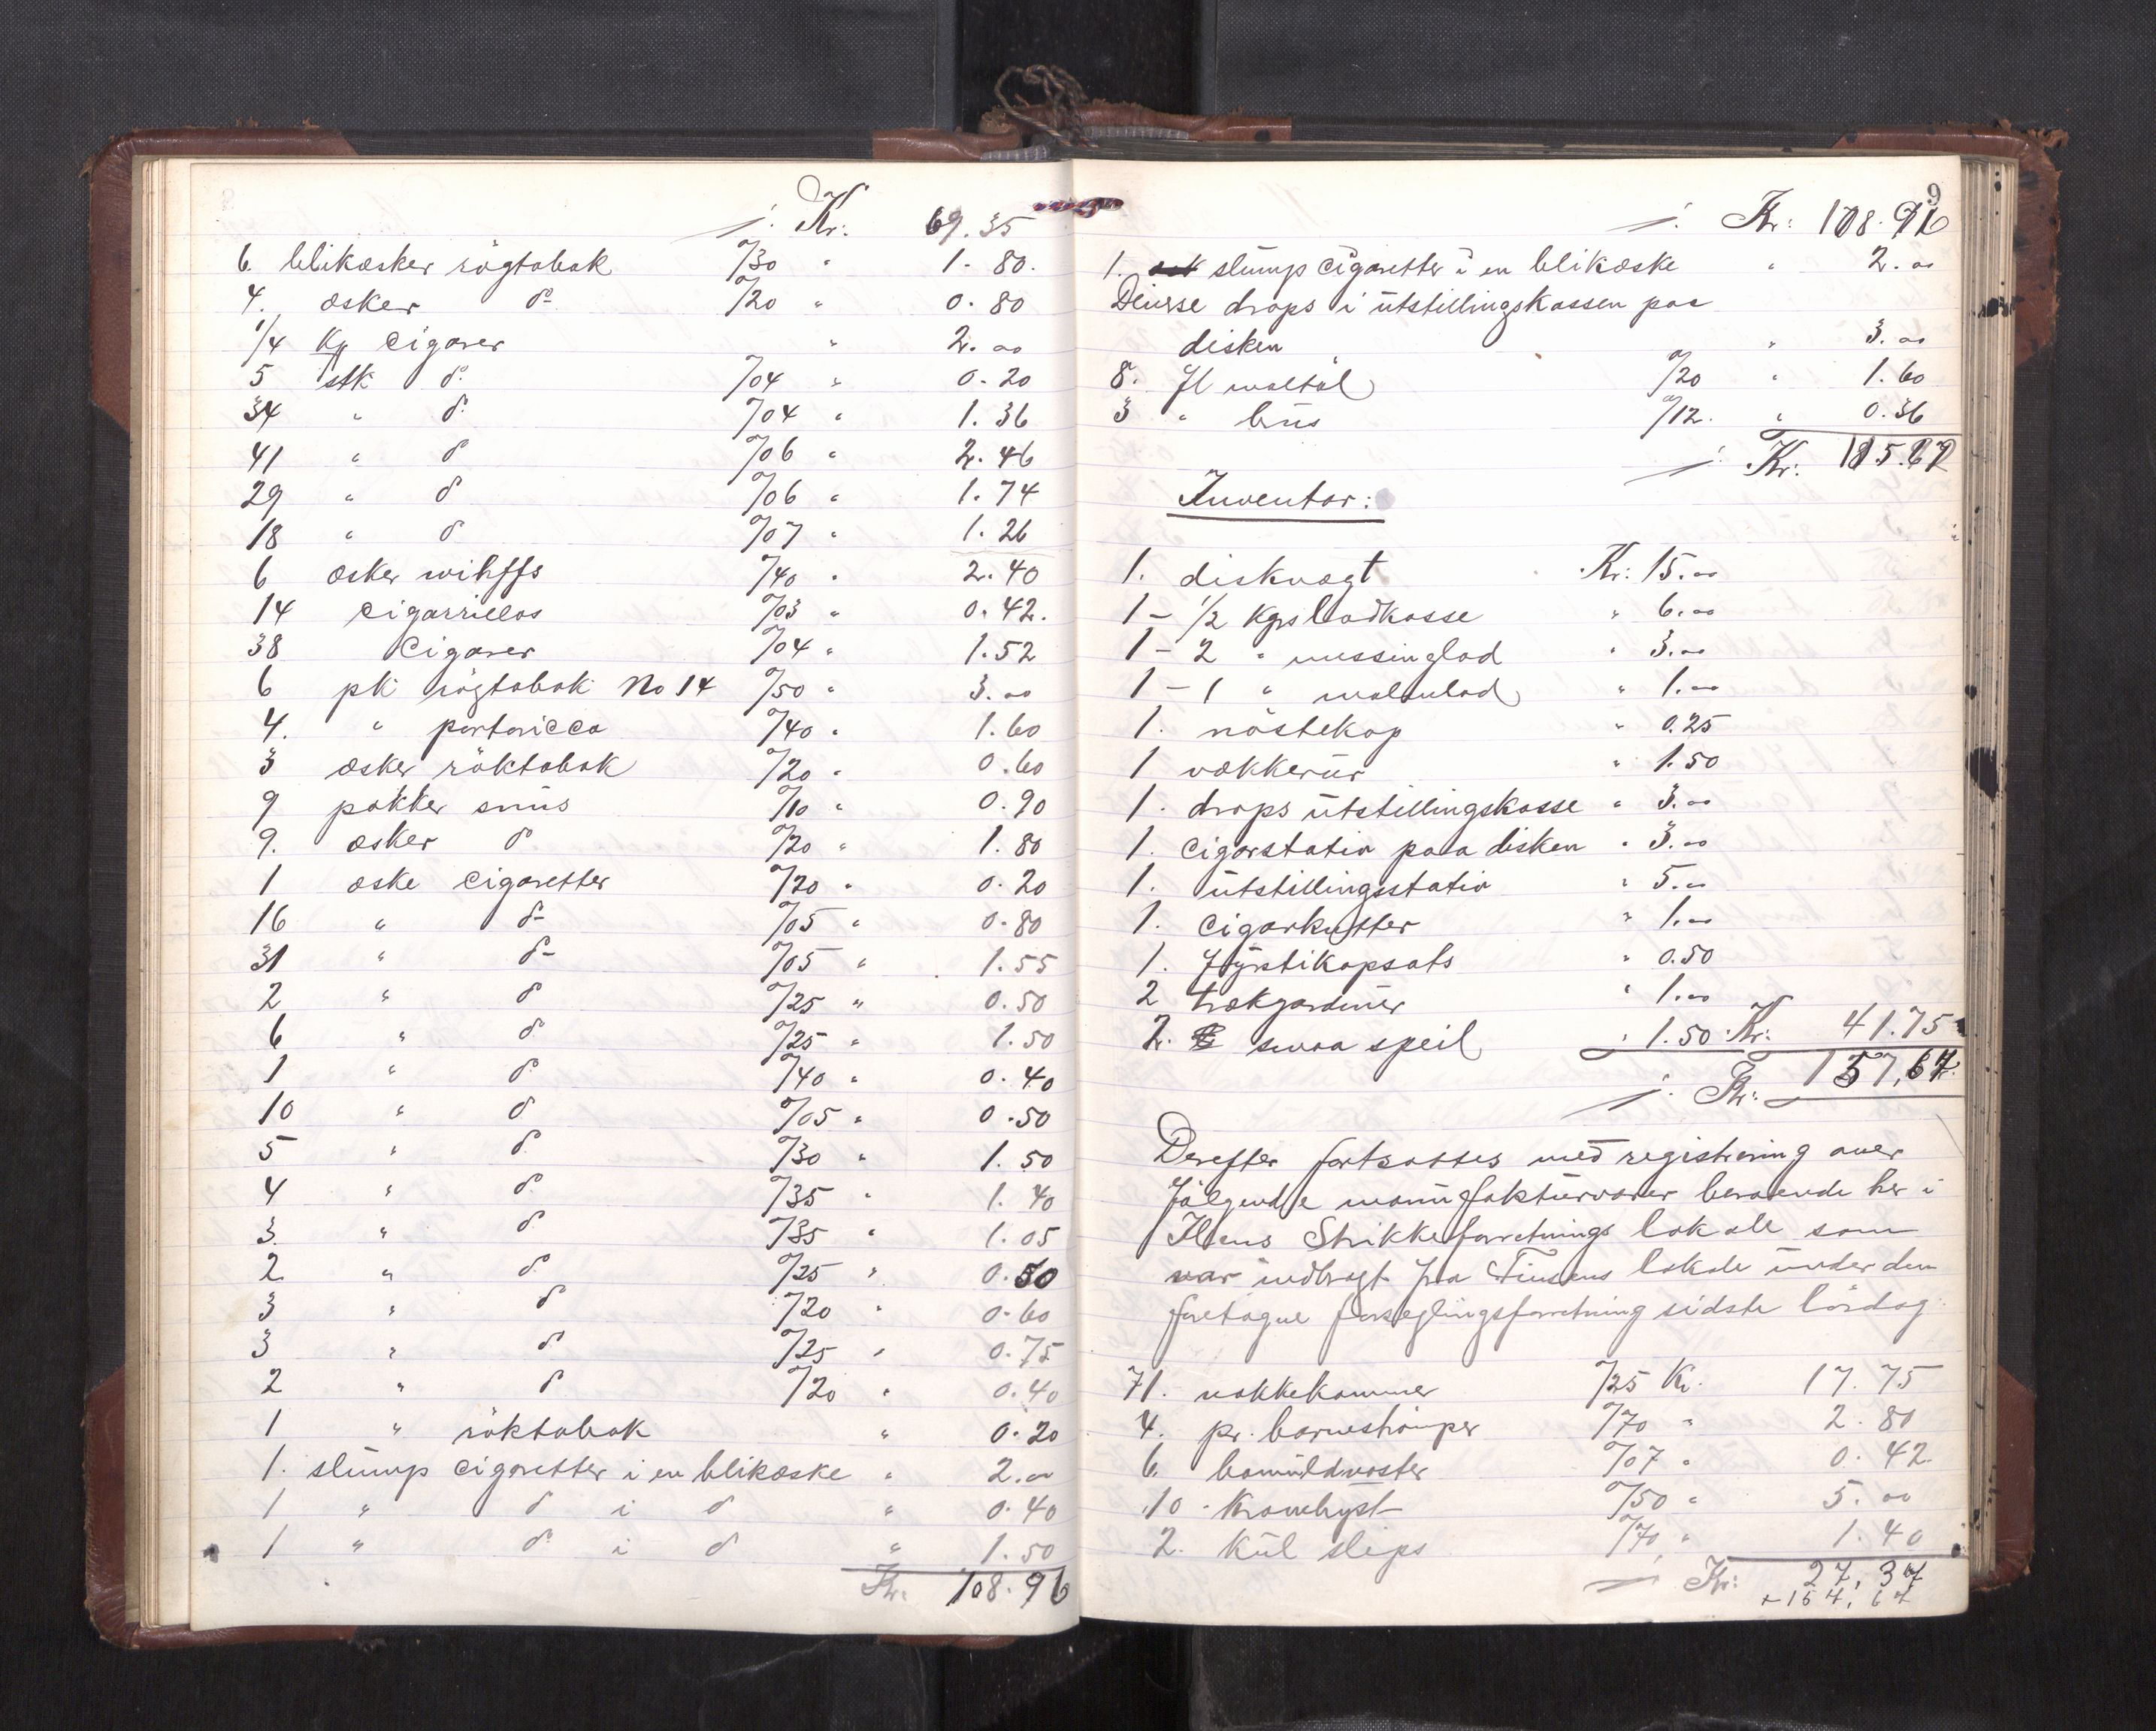 /. Kr: 69.35
6 blikæsker rögtobak %30 " 1.80.
4. æsker do %20 " 0.80
1/4 Kg cigarer " 2.00
5 stk do %04 " 0.20
34 " do %04 " 1.36
41 " do %06 " 2.46
29 " do %06 " 1.74
18 " do %07 " 1.26
6 æsker wihffs %40 " 2.40
14 cigarrillos %03 " 0.42.
38 Cigarer %04 " 1.52
6 pk rögtobak No 14 %50 " 3.00
4. " portoricco %40 " 1.60
3 æsker röktobak %20 " 0.60
9 pakker snus %10 " 0.90
9. æsker do %20 " 1.80
1 æske cigaretter %20 " 0.20
16 " do %05 " 0.80
31 " do %05 " 1.55
2 " do %25 " 0.50
6 " do %25 " 1.50
1 " do %40 " 0.40
10 " do %05 " 0.50
5 " do %30 " 1.50
4 " do %35 " 1.40
3. " do %35 " 1.05
2 " do %25 " 0.50
3 " do %20 " 0.60
3 " do %25 " 0.75
2 " do %20 " 0.40
1 " röktobak " 0.20
1. slump cigaretter i en blikæske " 2.00
1 " do i do " 0.40
1 " do i do " 1.50
Kr. 108.96
9
/. Kr: 108.96
1. slump cigaretter i en blikæske " 2.00
Diverse drops i utstillingskassen paa
disken " 3.00
8. fl maltöl %20 " 1.60
3 " brus %12. " 0.36
/. Kr:
Inventar:
1. diskvægt Kr: 15.00
1 - 1/2 Kgs lodkasse " 6.00
1 - 2 " messinglod " 3.00
1 - 1 " malmlod " 1.00
1. nöstekop " 0.25
1 vækkerur " 1.50
1. drops utstillingskasse " 3.00
1. cigarstativ paa disken " 3.00
1. utstillingsstativ " 5.00
1. cigarkutter " 1.00
1. fyrstikopsats " 0.50
2 trækgardiner " 1.00
2. smaa speil " 1.50 Kr: 41.75
/. Kr: 157,67.
Derefter fortsattes med registrering over
fölgende manufakturvarer beroende her i
Strikkeforretnings lokale som
var indbragt fra lokale under den
foretagne forseglingsforretning sidste lördag.
71. nakkekammer %25 Kr. 17.75
4. pr. barneströmper %70 " 2.80
6. bomuldnöster %07 " 0.42
10. Kravebryst %50 " 5.00
2. Kul slips %70 " 1.40
/. Kr: 27,37
+ 154,67